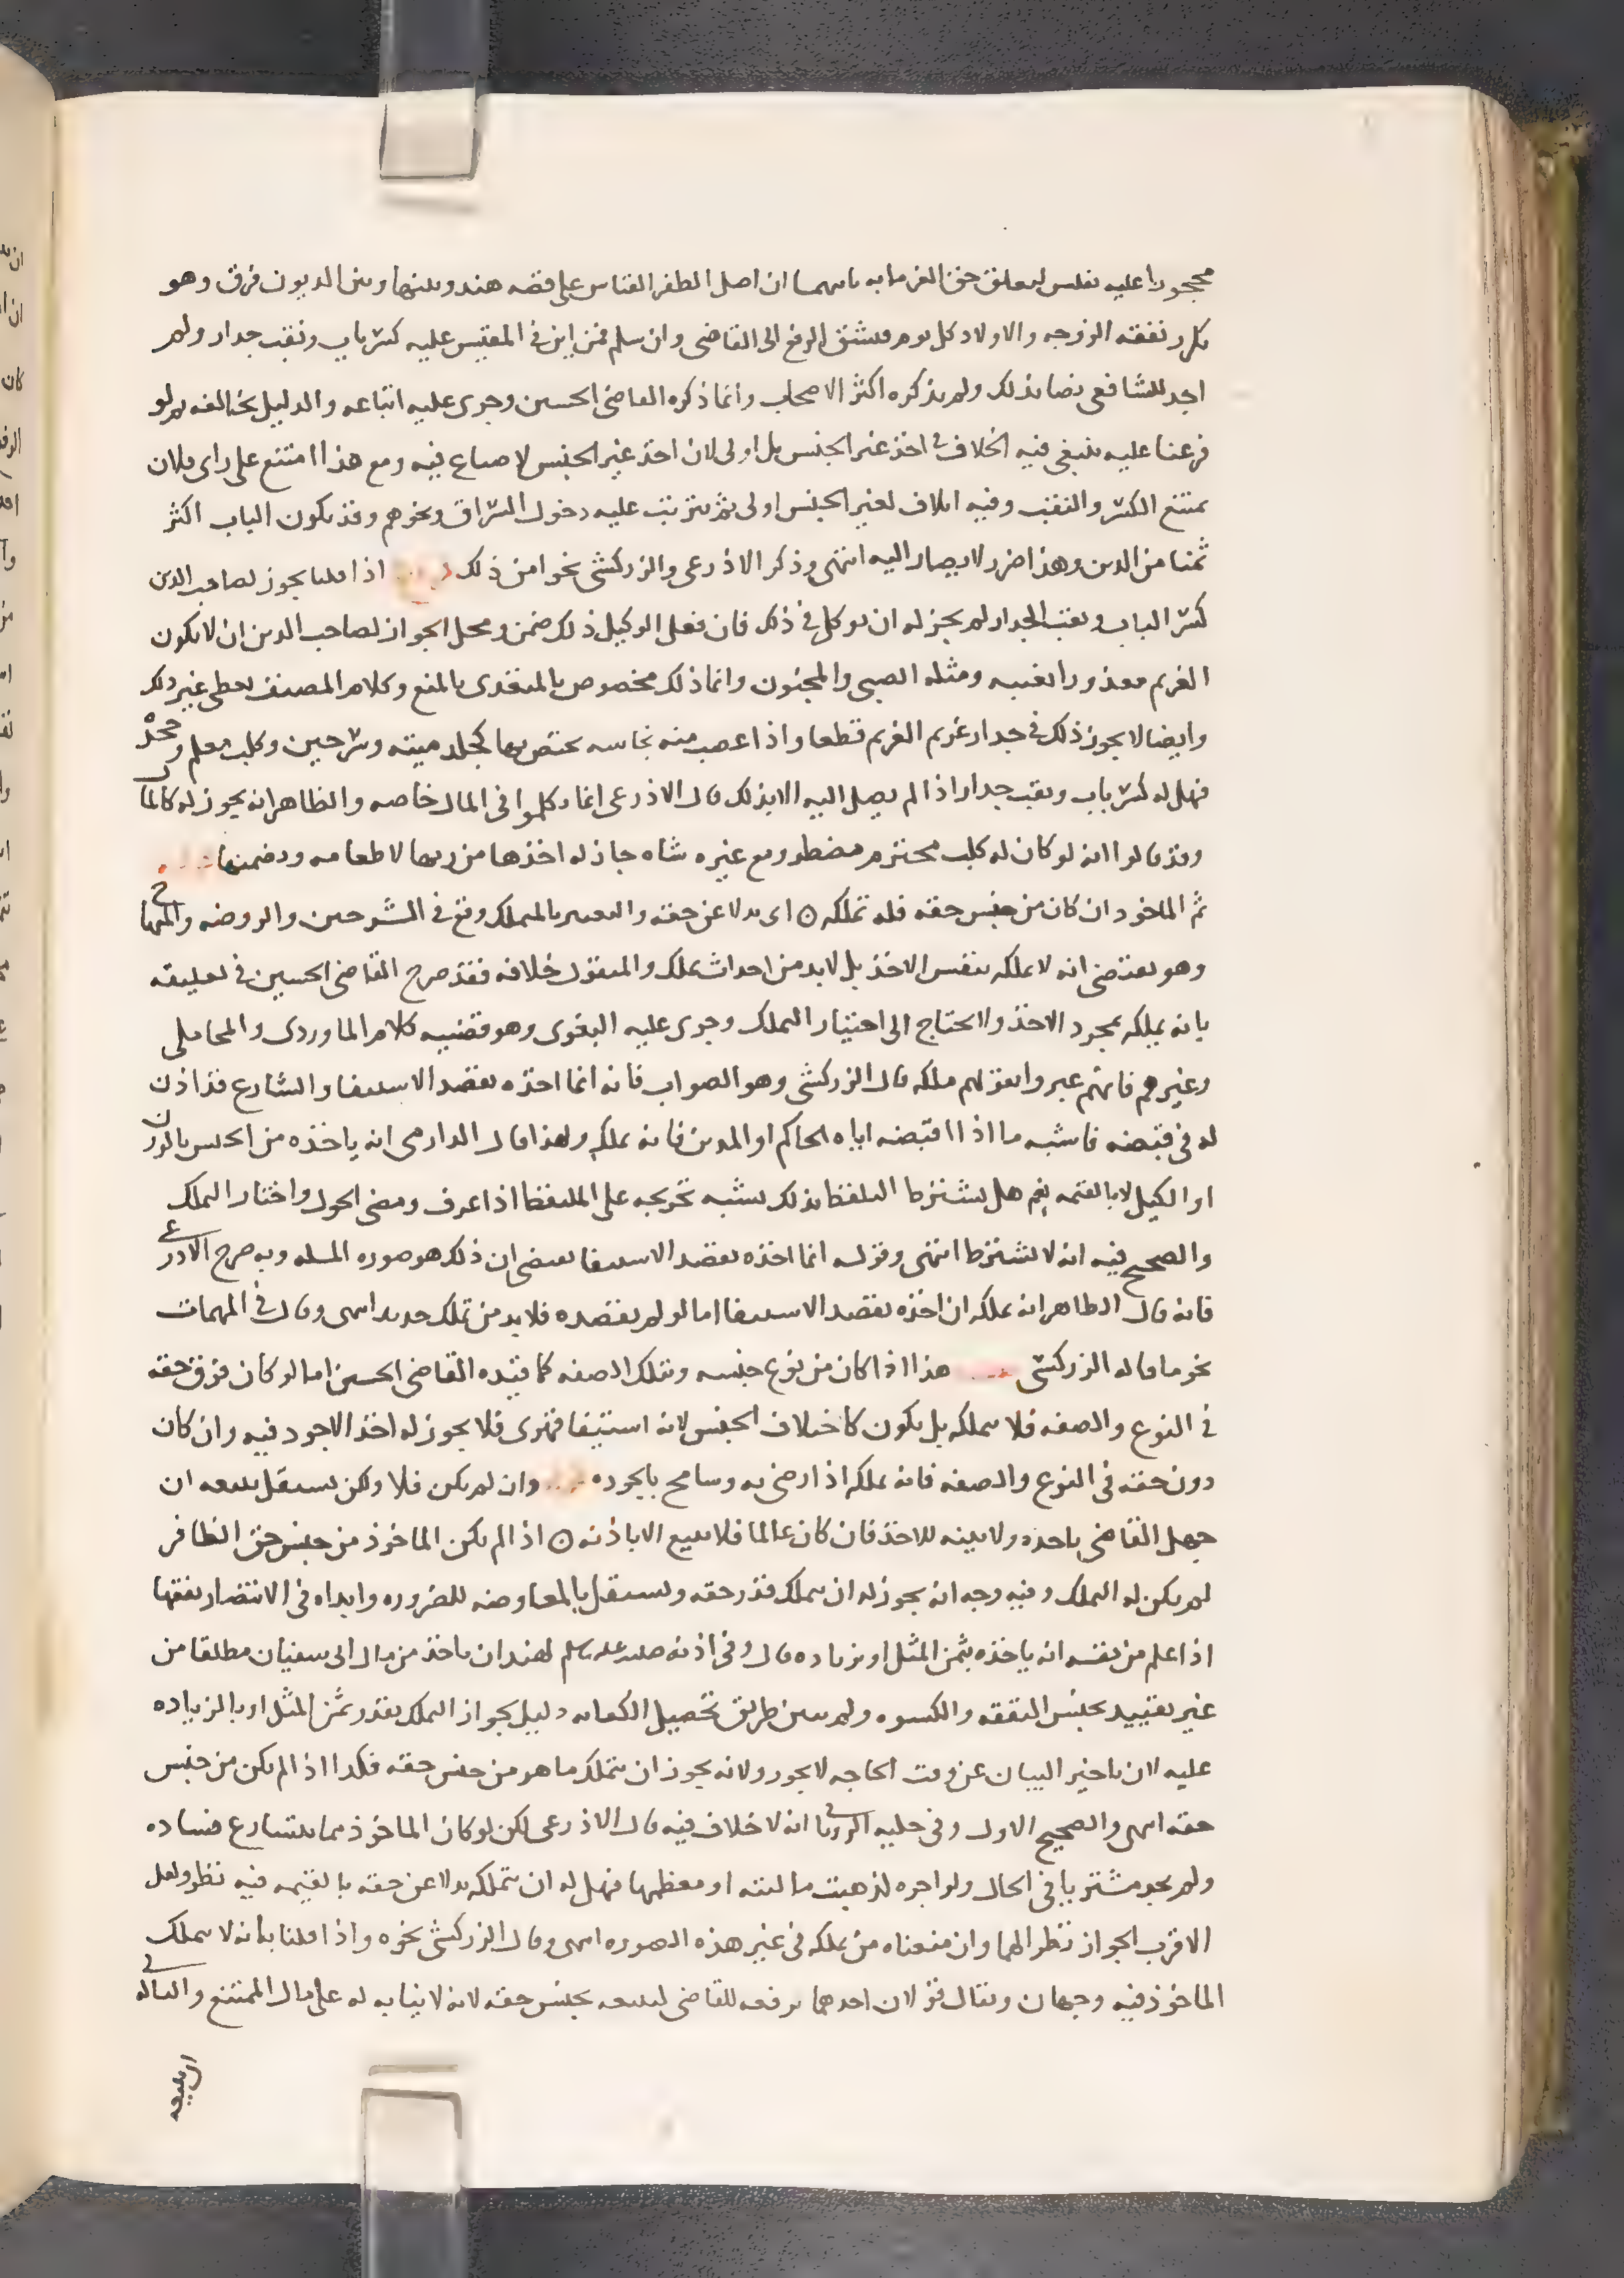 محجورا عليه بفلس لتعلق حق الغرما به ان اصل الظفر القياس على قصه هند وبينها وبين الديون فرق وهو
تكرر نفقه الزوجه والاولاد كل يوم فيشق الرفع الى القاضي وان سلم فمن اين في المقيس عليه كسر باب ونقب جدار ولم
اجد للشافعي نصا بذلك ولم يذكره اكثر الاصحاب وانما ذكره القاضي الحسين وجرى عليه اتباعه والدليل يخالفه ثم لو
فرعنا عليه ينبغي فيه الخلاف في اخذ غير الجنس بل اولى لان اخذ غير الجنس لا ضياع فيه ومع هذا امتنع على راى فلان
يمتنع الكسر والنقب وفيه اتلاف لغير الجنس اولى ثم يترتب عليه دخول السراق ونحوهم وقد يكون الباب اكثر
ثمنا من الدين وهذا ضرر لا يصار اليه انتهى وذكر الاذرعي والزركشي نحوا من ذلك اذا قلنا يجوز لصاحب الدين
كسر الباب ونقب الجدار لم يجز له ان يوكل في ذلك فان فعل الوكيل ذلك ضمن ومحل الجواز لصاحب الدين ان لا يكون
الغريم معذورا بغيبه ومثله الصبي والمجنون وانما ذلك مخصوص بالمتعدى بالمنع وكلام المصنف يعطي غير ذلك
وايضا لا يجوز ذلك في جدار غريم الغريم قطعا واذا غصب منه نجاسه يختص بها كجلد ميته وسرجين وكلب معلم وجحد
فهل له كسر باب ونقب جدار اذا لم يصل اليه الا بذلك قال الاذرعي انما تكلموا في المال خاصه والظاهر انه يجوز له كالمال
وقد قالوا انه لو كان له كلب محترم مضطر ومع غيره شاه جاز له اخذها من ربها لاطعامه ويضمنها
ثم الماخوذ ان كان من جنس حقه فله تملكه ن اى بدلا عن حقه والتعبير بالتملك وقع في الشرحين والروضه والمنهاج
وهو يقتضي انه لا يملكه بنفس الاخذ بل لابد من احداث تملك والمنقول خلافه فقد صرح القاضي الحسين في تعليقه
بانه يملكه بمجرد الاخذ ولا يحتاج الى اختيار التملك وجرى عليه البغوى وهو قضيه كلام الماوردى والمحاملي
وغيرهم فانهم عبروا بقولهم ملكه قال الزركشي وهو الصواب فانه انما اخذه بقصد الاستيفا والشارع قد اذن
له في قبضه فاشبه ما اذا اقبضه اياه الحاكم او المدين فانه يملكه ولهذا قال الدارمي انه ياخذه من الجنس بالوزن
او الكيل لا بالقيمه نعم هل يشترط التلفظ بذلك يشبه تخريجه على الملتقط اذا عرف ومضى الحول واختار التملك
والصحيح فيه انه لا يشترط انتهى وقوله انما اخذه بقصد الاستيفا يقتضي ان ذلك هو صوره المسله وبه صرح الاذرعي
فانه قال الظاهر انه يملكه ان اخذه بقصد الاستيفا اما لو لم يقصده فلا بد من تملك جديد انتهى وقال في المهمات
نحو ما قاله الزركشي هذا اذا كان من نوع جنسه وبتلك الصفه كما قيده القاضي الحسين اما لو كان فوق حقه
في النوع والصفه فلا يتملكه بل يكون كاختلاف الجنس لانه استيفا قهرى فلا يجوز له اخذ الاجود فيه وان كان
دون حقه في النوع والصفه فانه يملكه اذا رضي به وسامح بالجوده وان لم يكن فلا ولكن يستقل ببيعه ان
جهل القاضي باخذه ولا بينه للاخذ فان كان عالما فلا يبيع الا باذنه ن اذا لم يكن الماخوذ من جنس حق الظافر
لم يكن له التملك وفيه وجه انه يجوز له ان يتملك قدر حقه ويستقل بالمعاوضه للضروره وايداه في الانتصار تفقها
اذا علم من نفسه انه ياخذه بثمن المثل او بزياده قال وفي اذنه صلى الله عليه وسلم لهند ان تاخذ من مال ابي سفيان مطلقا من
غير تقييد بجنس النفقه والكسوه ولم يبين طريق تحصيل الكفايه دليل بجواز التملك بقدر ثمن المثل او بالزياده
عليه لان تاخير البيان عن وقت الحاجه لا يجوز ولانه يجوز ان يتملك ما هو من جنس حقه فكذا اذا لم يكن من جنس
حقه انتهى والصحيح الاول وفي حليه الرويانى انه لا خلاف فيه قال الاذرعي لكن لو كان الماخوذ مما يتسارع فساده
ولم يجد مشتريا في الحال ولو اخره لذهبت ماليته او معظمها فهل له ان يتملكه بدلا عن حقه بالقيمه فيه نظر ولعل
الاقرب الجواز نظرا لهما وان منعناه من تملكه في غير هذه الصوره انتهى وقال الزركشي نحوه واذا قلنا بانه لا يتملك
الماخوذ ففيه وجهان ويقال قولان احدهما يرفعه للقاضي ليبيعه بجنس حقه لانه لا نيابه له على مال الممتنع والثاني له
ان يبيعه